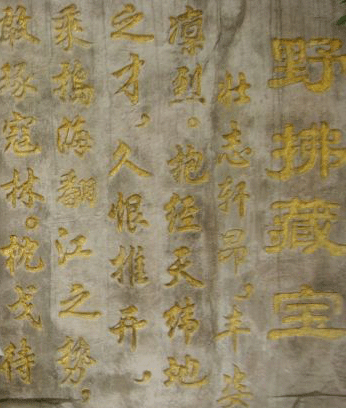 野拂藏宝
壮志轩昂，丰姿
凛烈。抱经天纬地
之才，久恨推开，
乘捣海翻江之势，
敢琢寇林。枕戈待